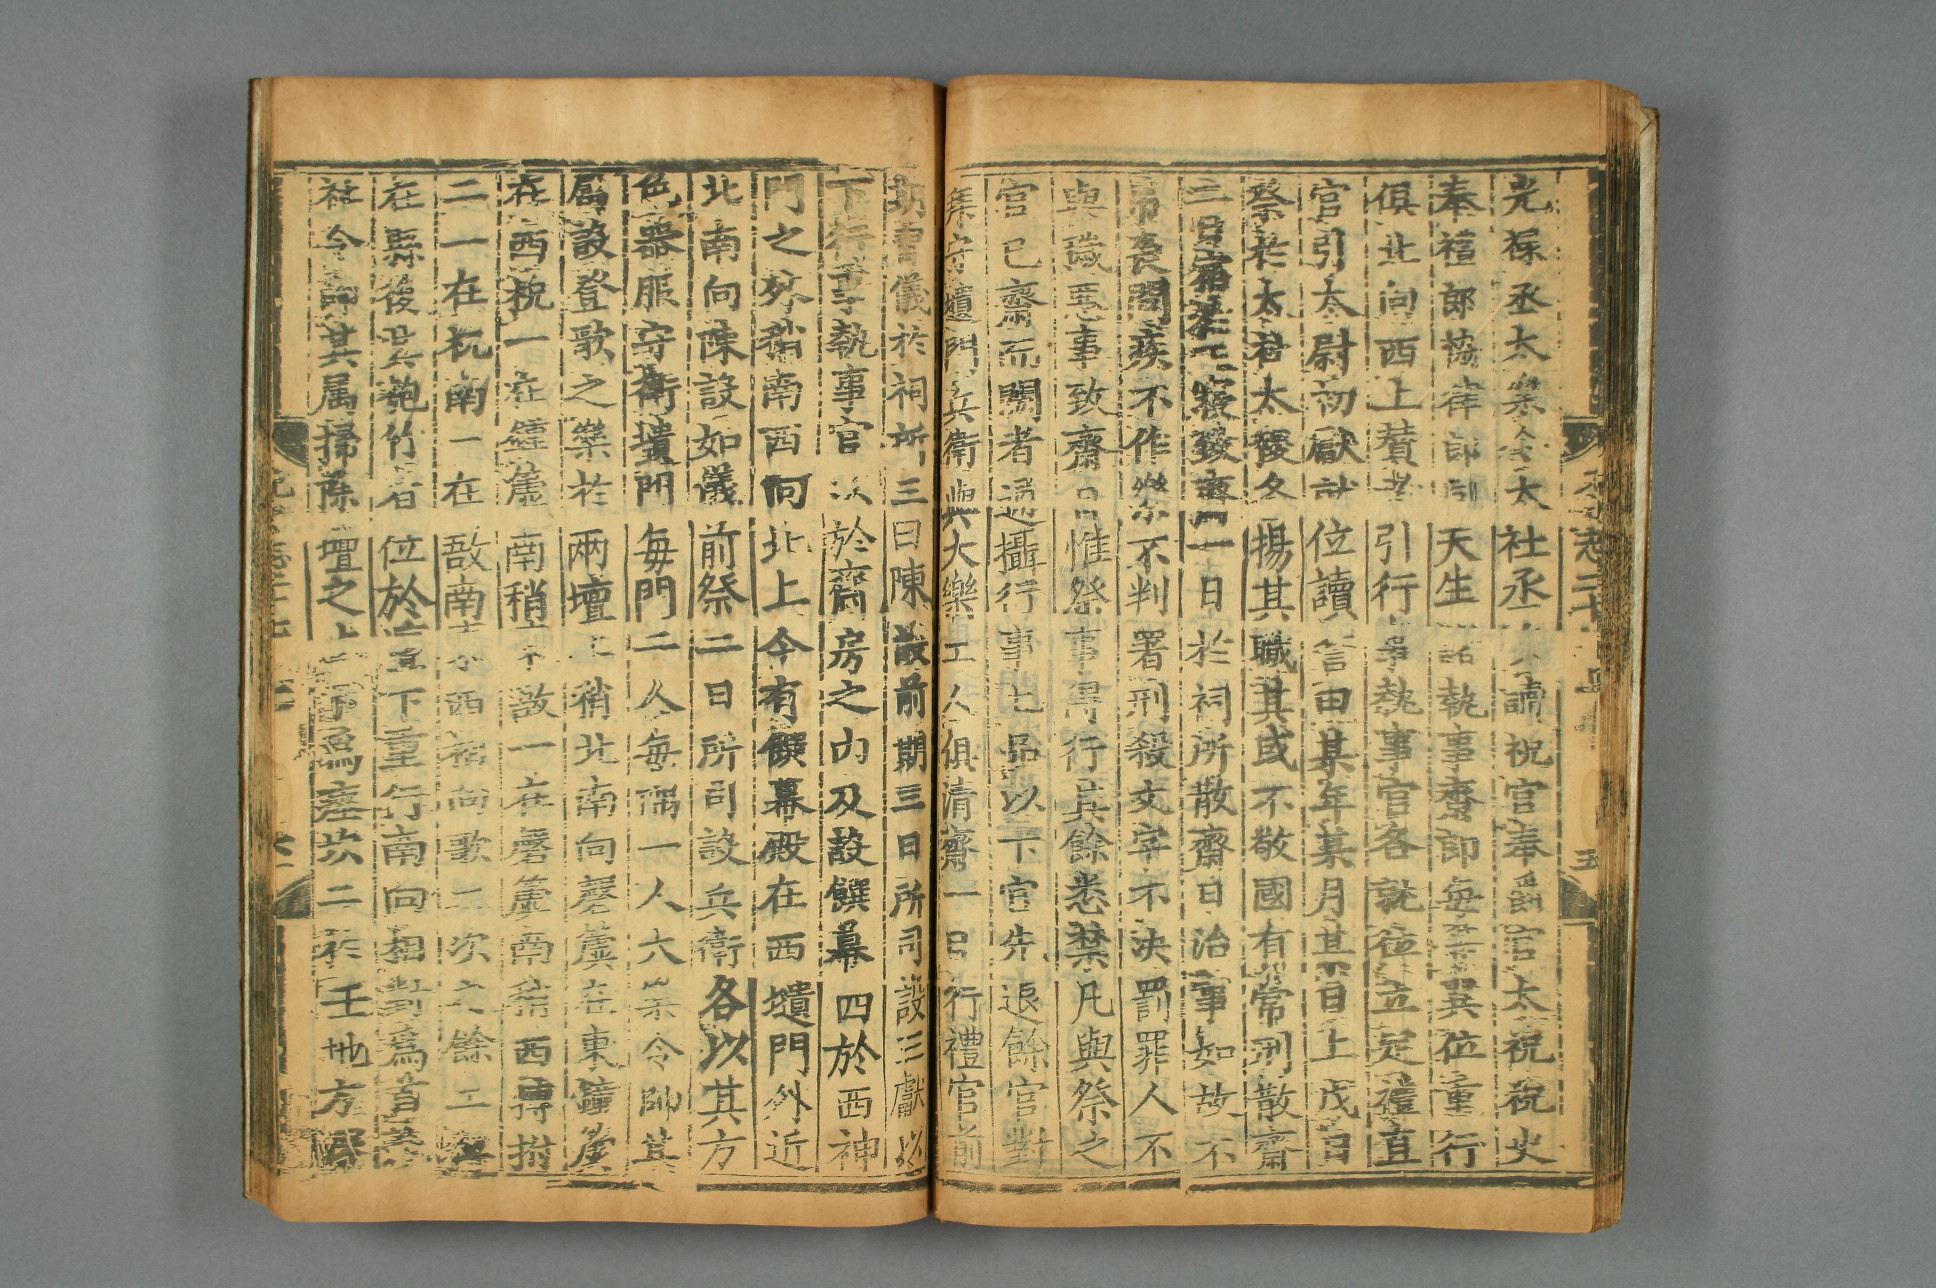 光祿丞太樂令太社丞次讀祝官奉爵官太祝祝史
奉禮郎協律郎引天生諸執事齋郎每等異位重行
俱北向西上贊者引行事執事官各就位立定禮直
官引太尉初獻就位讀誓曰某年某月某日上戊日
祭於太社太稷各揚其職其或不敬國有常刑散齋
三日宿於正寢致齋一日於祠所散齋日治事如故不
弔喪問疾不作樂不判署刑殺文字不決罰罪人不
與穢惡事致齋日惟祭事得行其餘悉禁凡與祭之
官已齋而闕者通攝行事七品以下官先退餘官對
拜守壝門兵衛與大樂工人俱清齋一日行禮官前
期習儀於祠所三日陳設前期三日所司設三獻以
下行事執事官以於齋房之內及設饌幕四於西神
門之外稍南西向北上今有饌幕殿在西壝門外近
北南向陳設如儀前祭二日所司設兵衛各以其方
色器服守衛壝門每門二人每隅一人大樂令帥其
屬設登歌之樂於兩壇上稍北南向磬簴在東鐘簴
在西柷一在鐘簴南稍東敔一在磬簴南稍西搏拊
二一在柷南一在敔南東西相向歌工次之餘工
在縣後其匏竹者位於壇下重行南向相對為首
社令帥其屬掃除壇之上下為瘞坎二於壬地方深
卷志二十七
五